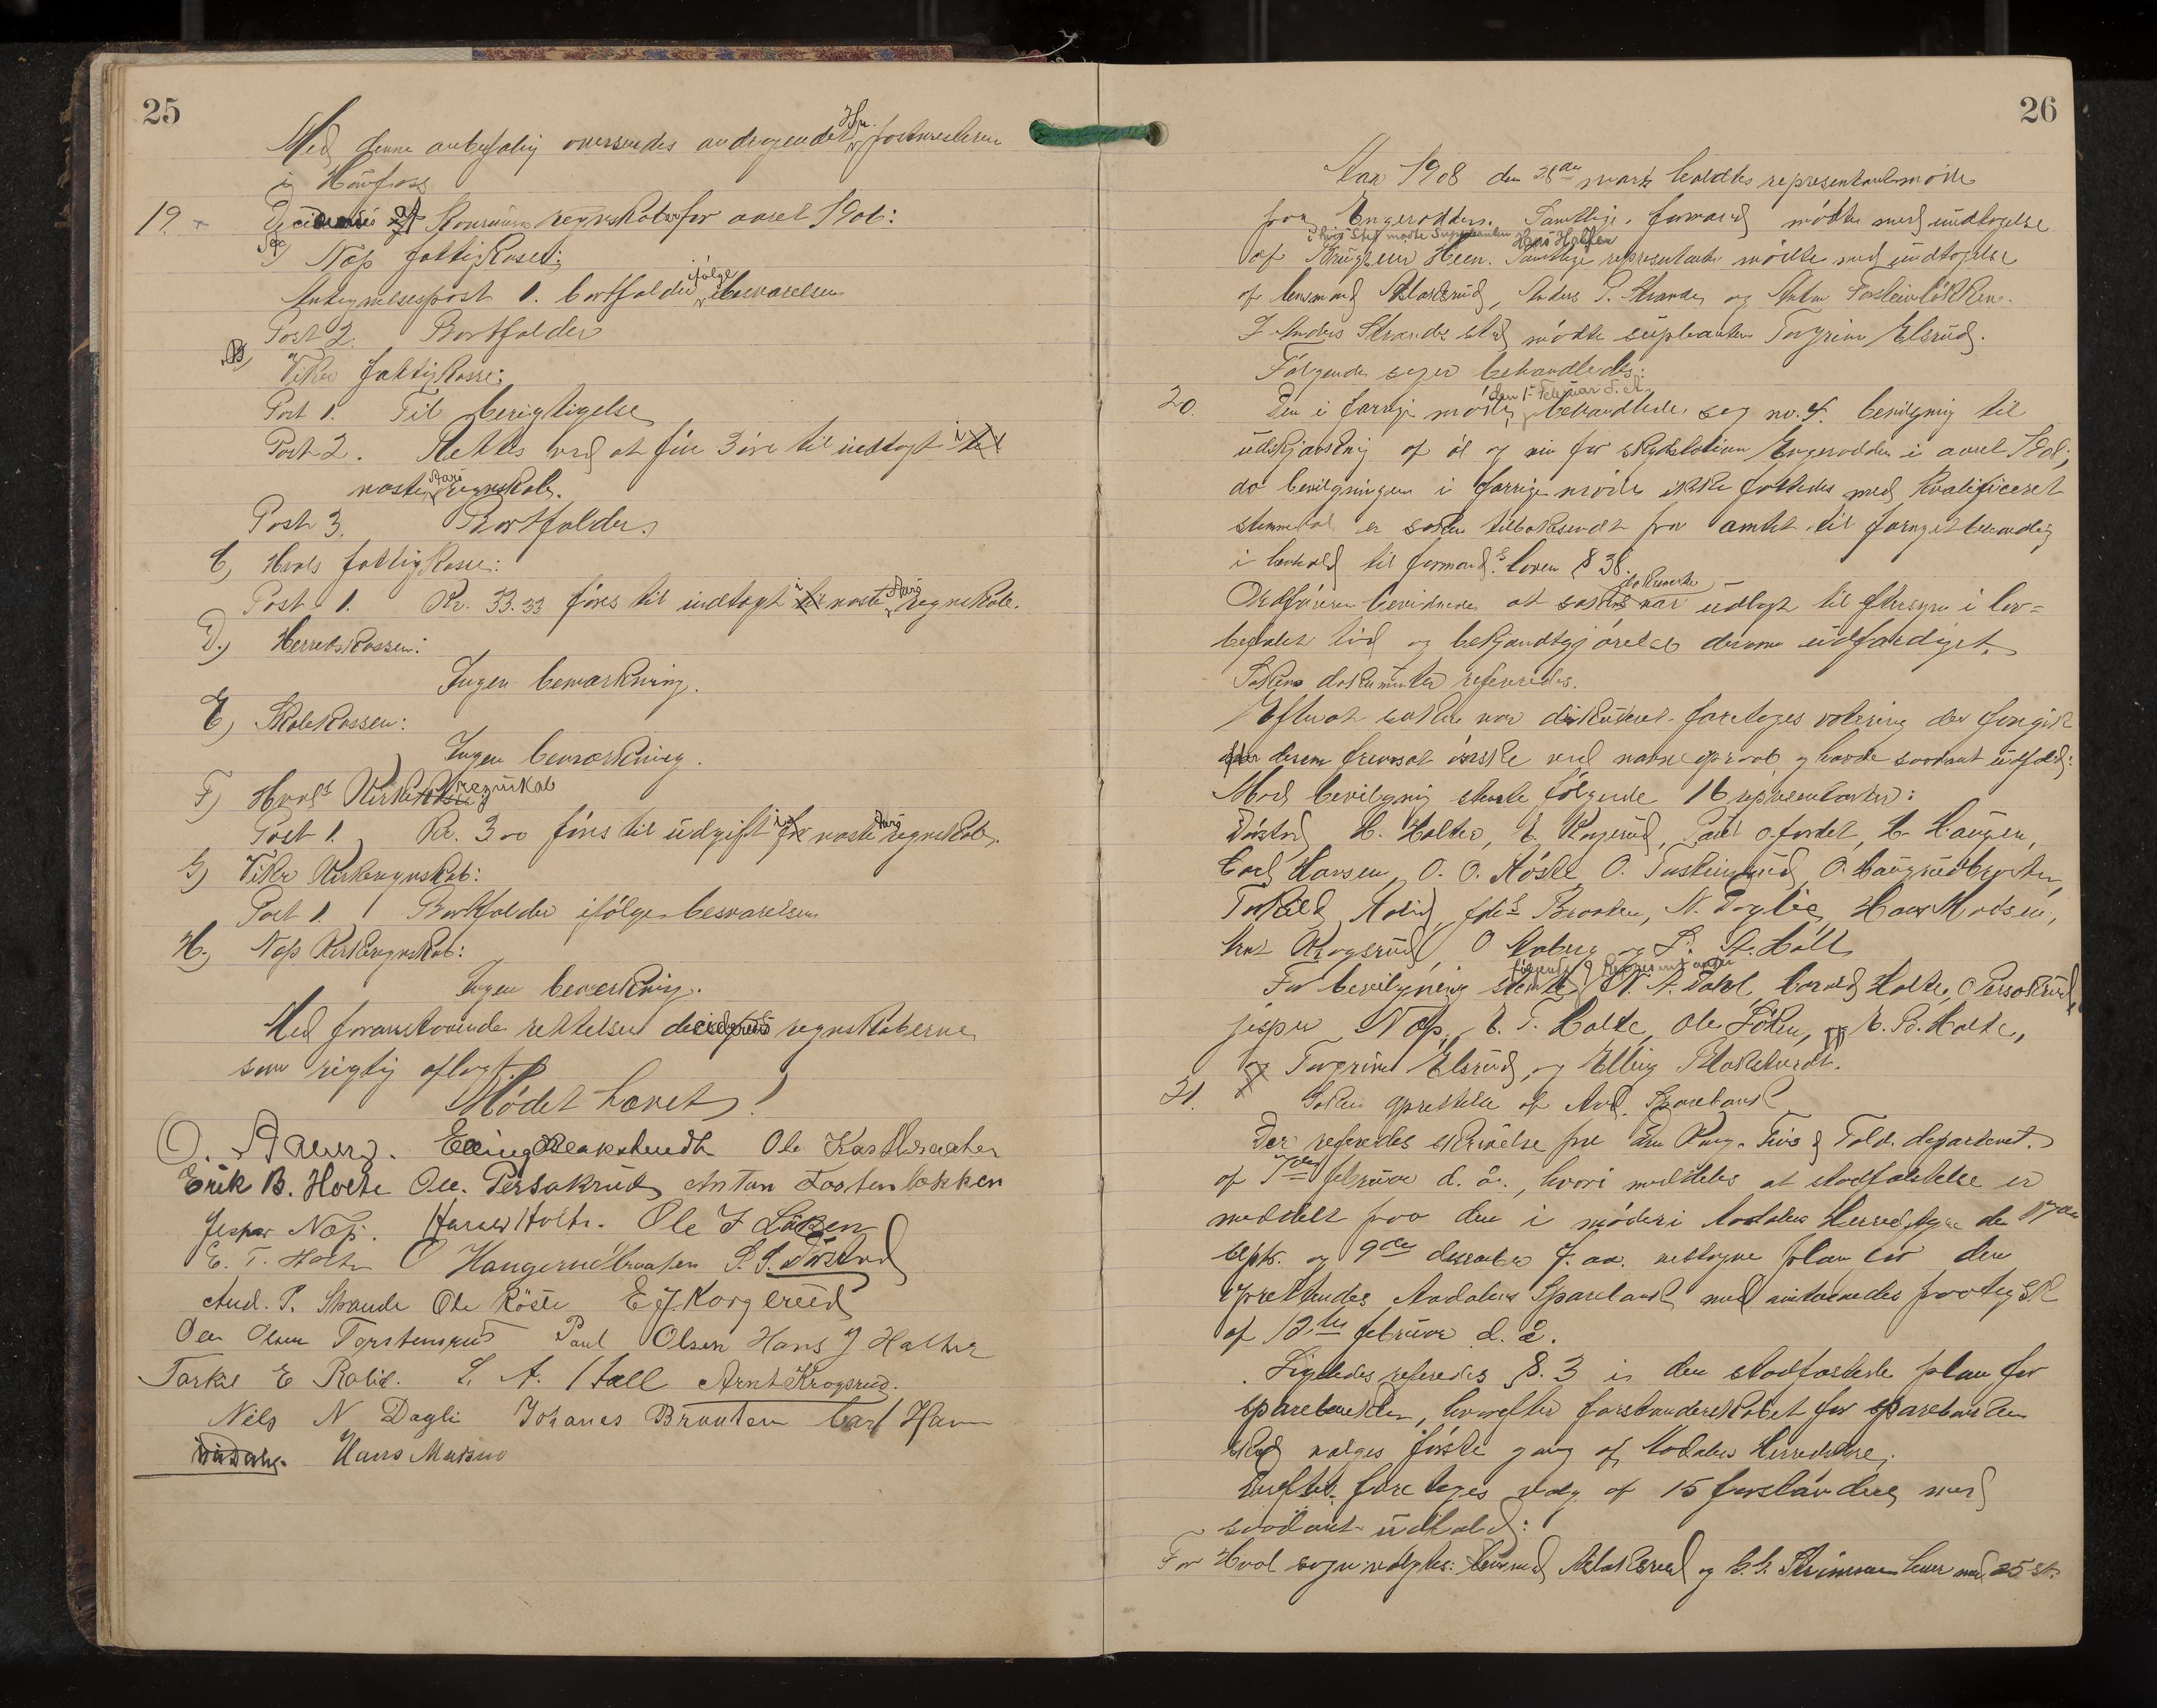 25
Med denne anbefaling oversendes andragendet Hr. postmesteren
i Hönefoss
19. Decideres af Kommunens regnskaber for aaret 1906:
Næs fattigkasse:
Antegnelsespost 1. bortfalder ifølge besvarelsen
Post 2. Bortfalder
B) Viker fattigkasse:
Post 1. Til berigtigelse
Post 2. Rettes ved at føre 3 øre til indtægt i
næste Aars regnskab.
Post 3. Bortfalder.
C, Hvals fattigkasse:
Post 1. Kr. 33.33 føres til indtægt i næste Aars regnskab.
D.) Herredskassen:
Ingen bemærkning.
E) Skolekassen:
Ingen bemærkning.
F) Hvals Kirkeregnskab
Post 1. Kr. 300 føres til udgift i næste Aars regnskab.
G) Viker Kirkeregnskab:
Post 1. Bortfalder ifølge besvarelsen
H.) Næs Kirkeregnskab:
Ingen bemærkning.
Med foranstaaende rettelser decideres regnskaberne
som rigtig aflagt.
Mødet hævet!
O. Elling Blakstvedt Ole Kastbraaten
Erik B. Holte Ole Persokrud Anton Tostenløkken
Jesper Næs. Harald Holte. Ole J Löken
E. T. Holte O Haugerudbraaten
And. P. Strande Ole Röste E J. Korgerud
Ole Olsen Torstensrud Paul Olsen Hans J Halter
Torkil E Rolid. L. A. Hall Arnt Krogsrud.
Nils N Dagli Johanes Braaten Carl Han
Hans Madsen
26
Aar 1908 den 28de marts holdtes representantmøde
paa Engerodden. Samtlige formænd mødte med undtagelse
i hvis Sted mødte Suppleanten Hans Halter
af Heen. Samtlige representanter mødte med undtagelse
af lensmand Aslaksrud, Anders P. Strande og Anton Tosteinløkken.
I Anders Strandes sted mødte supleanten Torgrim Elsrud.
Følgende sager behandledes:
20. Den i forrige møde den 1 Februar d. A. behandlede sag no. 4 bevilgning til
udskjænkning af øl og vin for skydsstation Engerodden i aaret 1908,
da bevilgningen i forrige møde ikke fattedes med kvalificeret
stemmetal er saken tilbakesendt fra amtet til fornyet behandling
i henhold til formands. loven § 38.
Ordføreren bevidnede at sakens dokumenter var udlagt til eftersyn i lov-
befalet tid og bekjendtgjørelse derom udfærdiget.
Sakens dokumenter refereredes.
Efterat saken var diskuteret foretoges votering der foregik
derom fremsat ønske ved navneopraab og havde saadant udfald:
Mod bevilgning stemte følgende 16 representanter:
H. Halter, E. Korgerud, Paul Ofordet, H. Haugen,
Carl Hansen, O. O. Röste O. Tosteinsrud, O. Haugerudbraaten,
Torkild Rolid, Johs Braaten, N. Daglie, Hans Madsen,
Arnt Krogsrud, O Aaberg og L. A. Hall
For bevilgning stemte følgende 9 Representanter N. A. Dahl, Harald Holte, O Persokrud,
Jesper Næs, E. T. Holte, Ole Löken, E. B. Holte,
Torgrim Elsrud, og Elling Blakstvedt.
21. Saken oprettelse af Aad. Sparebank
Der refereredes skrivelse fra den Kong. Fins & Told. departement.
af 7de februar d. å., hvori meddeles at stadfæstelse er
meddelt paa den i møder i Aadalens Herredstyre den 17de
Septr. og 9de december f. aa. vedtagne plan for den
oprettendes Aadalens Sparebank med amtmandens paategn.
af 12te februar d. å.
Ligeledes refereredes §. 3 i den stadfæstede plan for
sparebanken, hvorefter forstanderskabet for sparebanken
skal vælges første gang af Aadalens Herredstyre.
Derefter foretoges valg af 15 forstandere med
saadant udfald:
For Hval sogn valgtes: lensmand Aslaksrud og hver med 25 st.